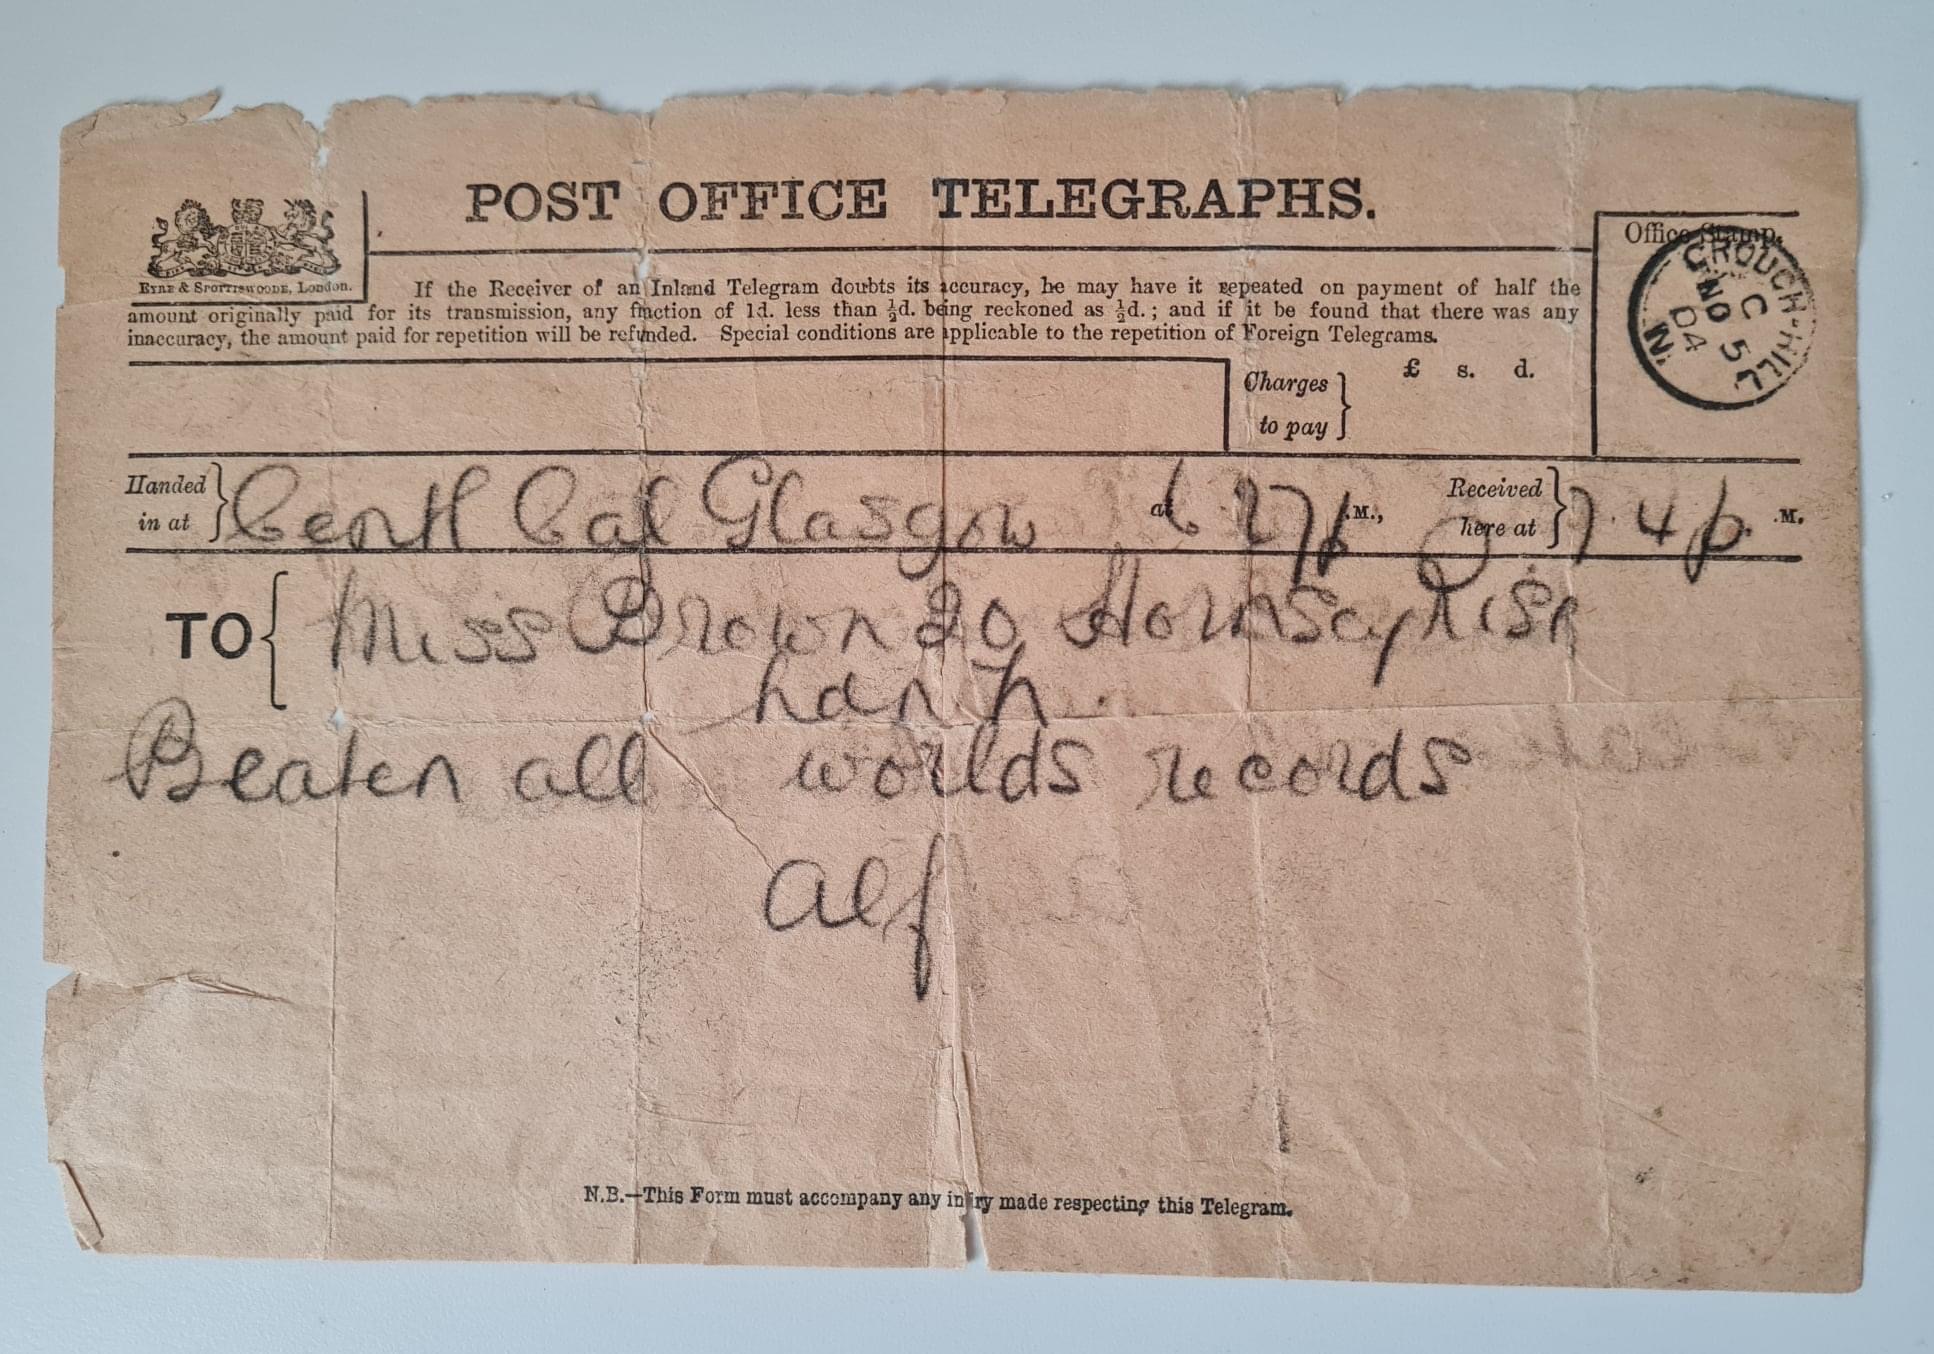 POST OFFICE TELEGRAPHS.
EYRE & SPOTTISWOODE, LONDON.
Office Stamp.
CROUCH-HILL N.
C
NO 5
04
If the Receiver of an Inland Telegram doubts its accuracy, he may have it repeated on payment of half the
amount originally paid for its transmission, any fraction of 1d. less than ½d. being reckoned as ½d.; and if it be found that there was any
inaccuracy, the amount paid for repetition will be refunded. Special conditions are applicable to the repetition of Foreign Telegrams.
Charges to pay } £ s. d.
Handed in at } Centl Cal Glasgow at 6 27p .M., Received here at } 7.4p. .M.
TO { Miss Brown 20 Hornsey Rise
Beaten all worlds records
Alf
N.B.—This Form must accompany any inquiry made respecting this Telegram.